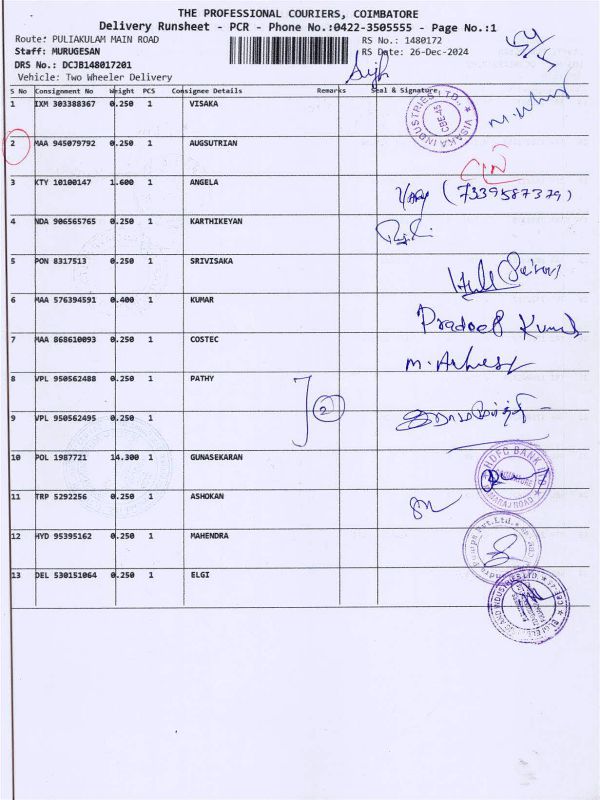 THE PROFESSIONAL COURIERS, COIMBATORE
Delivery Runsheet - PCR - Phone No.:0422-3505555 - Page No.:1
Route: PULIAKULAM MAIN ROAD RS No.: 1480172
Staff: MURUGESAN RS Date: 26-Dec-2024
DRS No.: DCJB148017201
Vehicle: Two Wheeler Delivery
S No Consignment No Weight PCS Consignee Details Remarks Seal & Signature
1 IXM 303388367 0.250 1 VISAKA
VISAKA INDUSTRIES LTD., CBE-45
2 MAA 945079792 0.250 1 AUGSUTRIAN
3 KTY 10100147 1.600 1 ANGELA (7339587379)
4 NDA 906565765 0.250 1 KARTHIKEYAN
5 PON 8317513 0.250 1 SRIVISAKA
6 MAA 576394591 0.400 1 KUMAR Pradeep Kumar
7 MAA 868610093 0.250 1 COSTEC
8 VPL 950562488 0.250 1 PATHY
2
9 VPL 950562495 0.250 1
10 POL 1987721 14.300 1 GUNASEKARAN
HDFC BANK LTD
11 TRP 5292256 0.250 1 ASHOKAN
12 HYD 95395162 0.250 1 MAHENDRA
13 DEL 530151064 0.250 1 ELGI